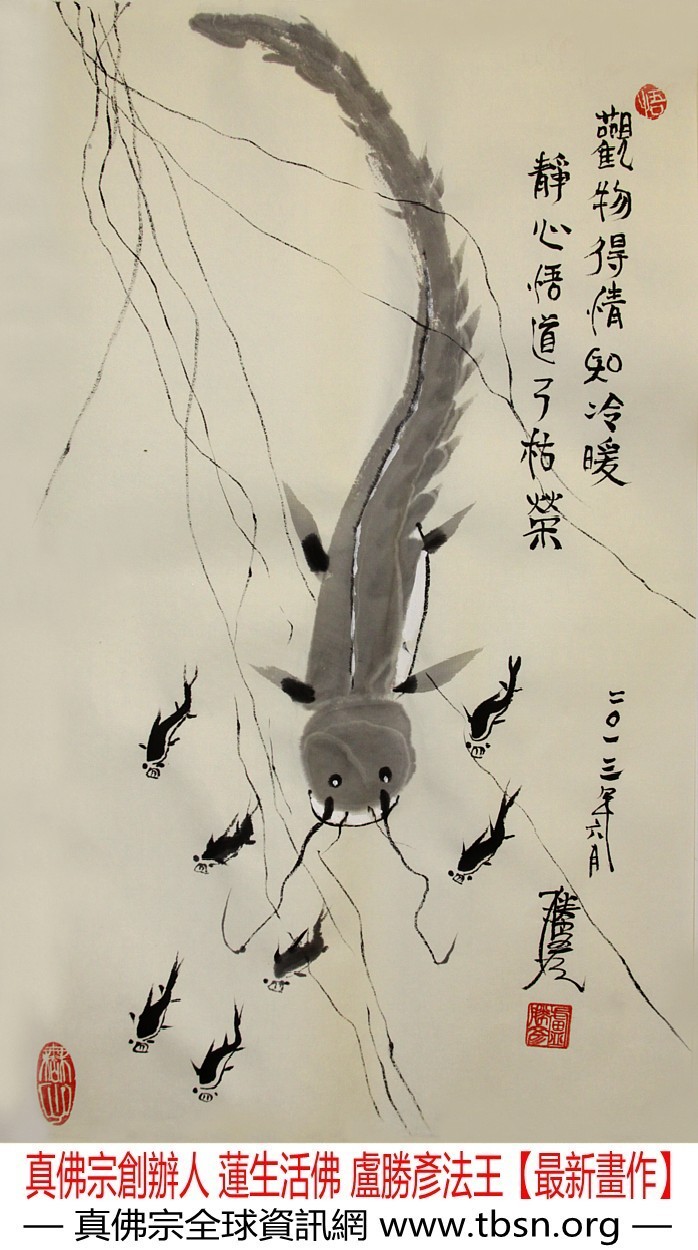 悟
觀物得情知冷暖
靜心悟道了枯榮
二〇一三年六月
盧勝彥
真佛宗創辦人 蓮生活佛 盧勝彥法王【最新畫作】
— 真佛宗全球資訊網 www.tbsn.org —